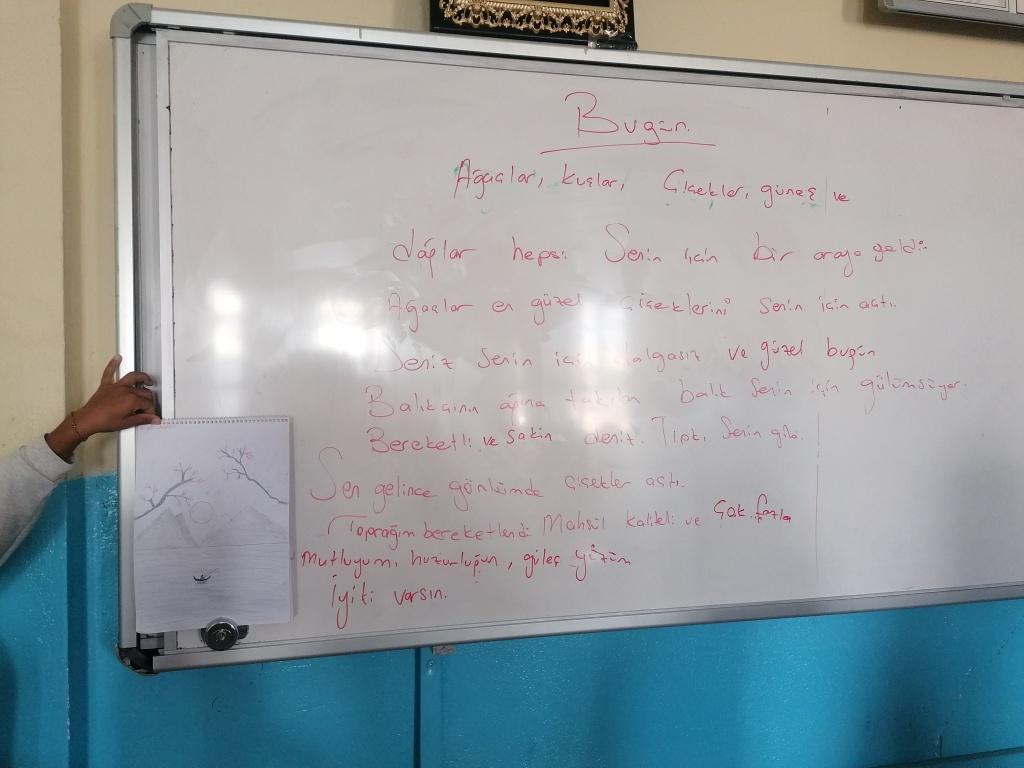 Bugün.
Ağaçlar, kuşlar, Çiçekler, güneş ve
dağlar hepsi Senin için bir araya geldi.
Ağaçlar en güzel Çiçeklerini senin için açtı.
Deniz senin için dalgasız ve güzel bugün
Balıkçının ağına takılan balık senin için gülümsüyor.
Bereketli ve sakin deniz. Tıpkı senin gibi.
Sen gelince gönlümde çiçekler açtı.
Toprağım bereketlendi Mahsül kaliteli ve Çok fazla
Mutluyum, huzurluğun, güleç yüzüm
İyiki varsın.